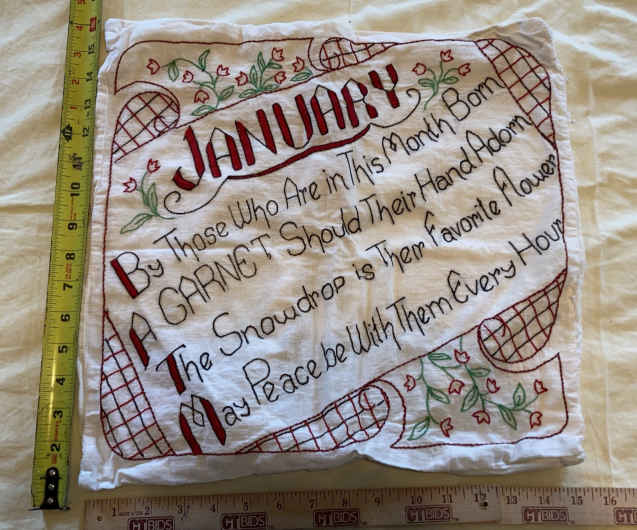 JANUARY
By Those Who Are in This Month Born
A GARNET Should Their Hand Adorn
The Snowdrop is Their Favorite Flower
May Peace be With Them Every Hour
1 2 3 4 5 6 7 8 9 10 11 12 13 14 15 16
GTBIDS GTBIDS GTBIDS GTBIDS GTBIDS GTBIDS
2 3 4 5 6 7 8 9 10 12 13 14 15